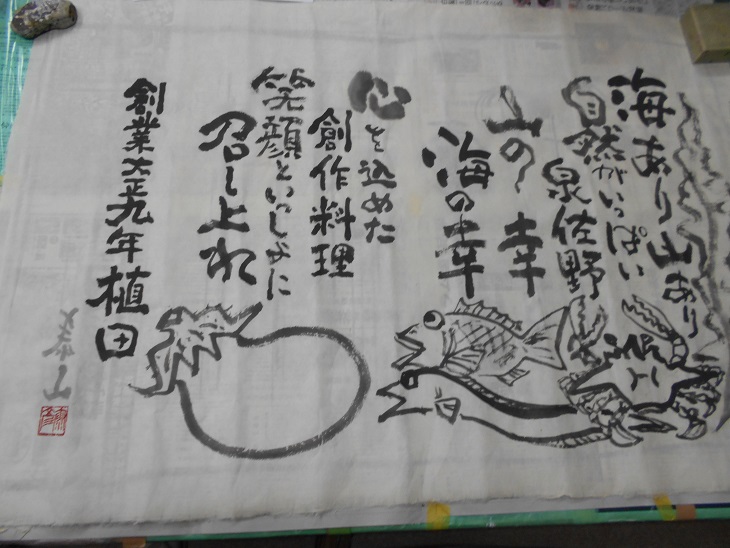 海あり山あり
自然がいっぱい
泉佐野
山の幸
海の幸
心を込めた
創作料理
笑顔といっしょに
召し上れ
創業大正九年植田